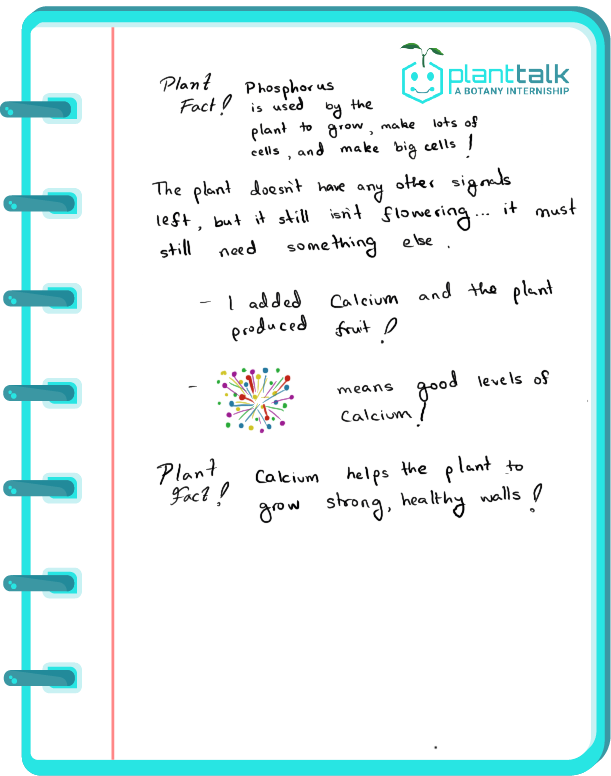 planttalk
A BOTANY INTERNISHIP
Plant Fact!
Phosphorus
is used by the
plant to grow, make lots of
cells, and make big cells!
The plant doesn't have any other signals
left, but it still isn't flowering... it must
still need something else.
- I added Calcium and the plant
produced fruit!
- means good levels of
Calcium!
Plant Fact!
Calcium helps the plant to
grow strong, healthy walls!